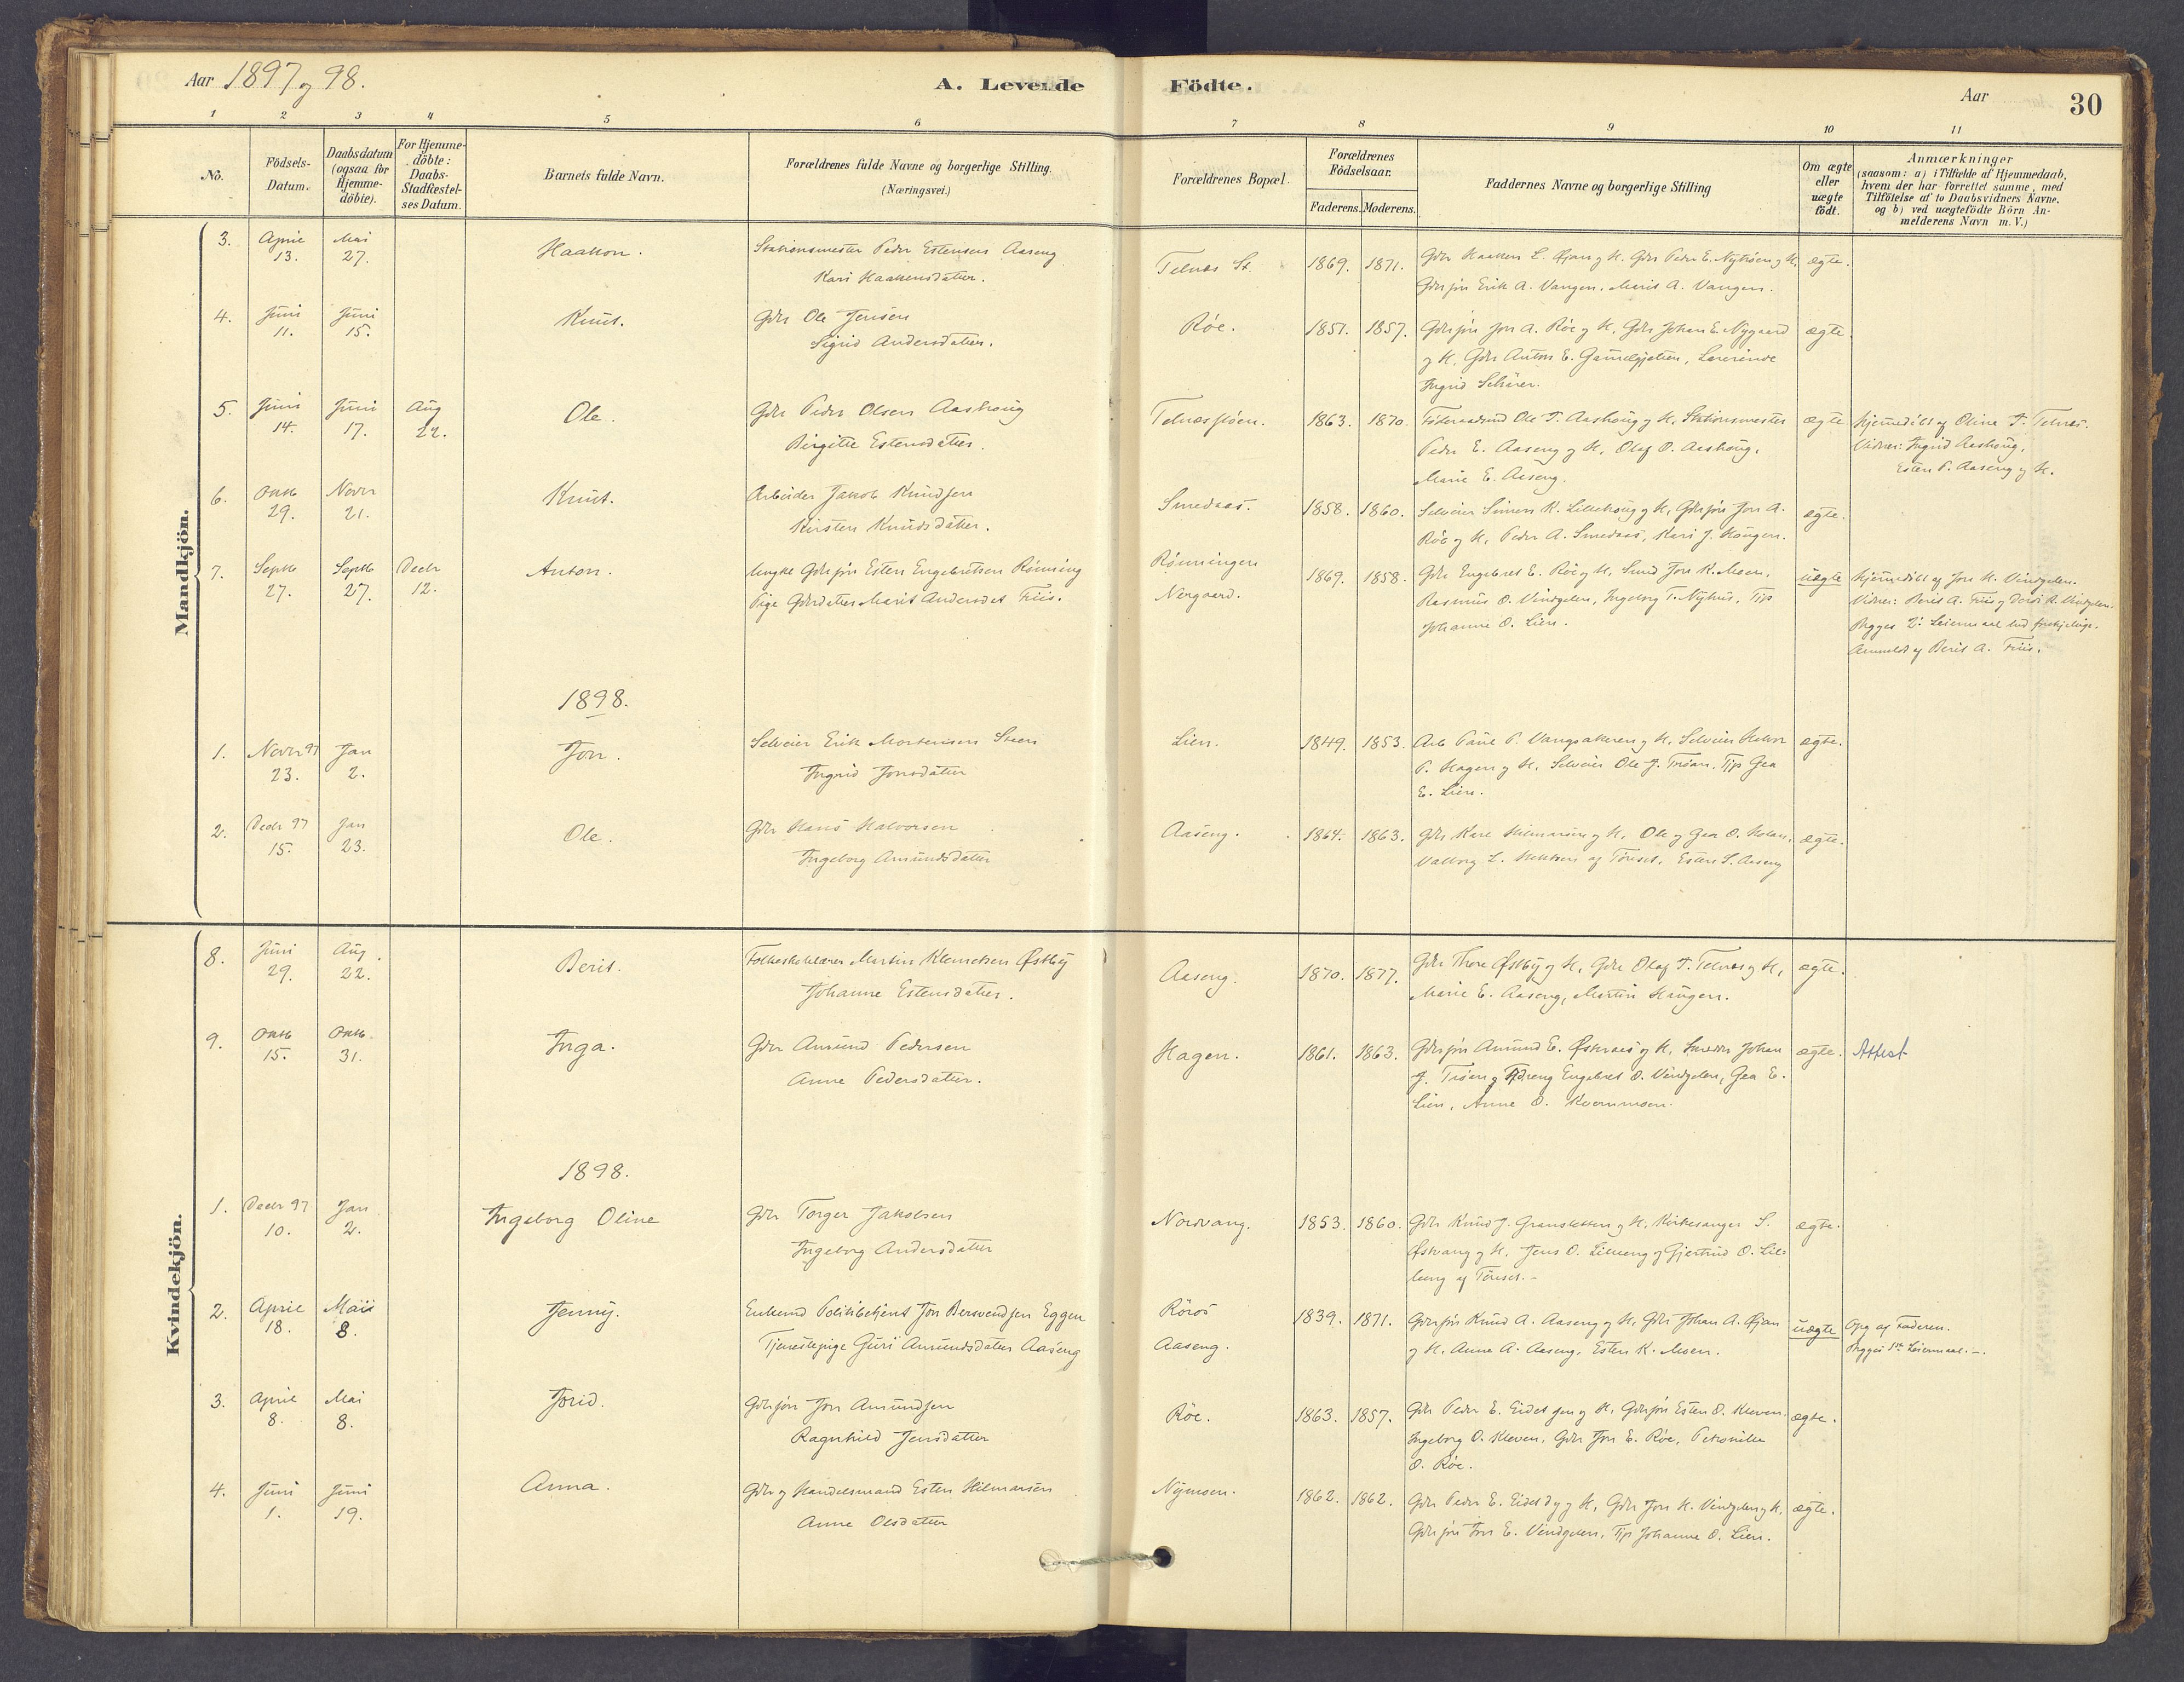 Aar 1897 og 98.
A. Levende Födte.
Aar
30
1 2 3 4 5 6 7 8 9 10 11
No.
Födsels-Datum.
Daabsdatum (ogsaa for Hjemme-döbte).
For Hjemme-döbte: Daabs-Stadfæstel-ses Datum.
Barnets fulde Navn.
Forældrenes fulde Navne og borgerlige Stilling. (Næringsvei.)
Forældrenes Bopæl.
Forældrenes Födselsaar.
Faderens. Moderens.
Faddernes Navne og borgerlige Stilling
Om ægte eller uægte födt.
Anmærkninger (saasom: a) i Tilfælde af Hjemmedaab, hvem der har forrettet samme, med Tilföielse af to Daabsvidners Navne, og b) ved uægtefödte Börn An-melderens Navn m. V.)
Mandkjön.
3. April 13. Mai 27. Haakon. Stationsmester Peder Estensen Aaseng
Kari Haakensdatter.
Telnes St. 1869. 1871. Gdr Haaken L. Øian og H. Gdr Peder E. Nytrøen og H. ægte.
Gdrsøn Erik A. Vangen. Marit A. Vangen.
4. Juni 11. Juni 15. Knut. Gdr Ole Jensen
Sigrid Andersdatter.
Røe. 1851. 1857. Gdrsøn Jon A. Røe og H, Gdr Johan E. Nygaard ægte
og H, Gdr Anton E. Gammelgjetten, Lærerinde
Ingrid
5. Juni 14. Juni 17. Aug 22. Ole. Gdr Peder Olsen Aashoug
Birgitte Estensdatter.
Telnesmoen. 1863. 1870. Føderaadsmd Ole T. Aashoug og H, Stationsmester ægte
Peder E. Aaseng og H, Olaf O. Aashoug,
Marie E. Aaseng.
Hjemmedøbt af Oline T. Telnes.
Vidner: Ingrid Aashoug,
Esten P. Aaseng og H.
6. Oktb 29. Novr 21. Knut. Arbeider Jakob Knudsen
Kirsten Knudsdatter.
Smedaas. 1858. 1860. Selveier Simen K. Lillehoug og H, Gdrsøn Jon A. ægte.
Røe og H, Peder A. Smedaas, Kari J. Hougen.
7. Septb 27. Septb 27. Decbr 12. Anton. Ungkl Gdrsøn Esten Engebretsen Rønning
Pige Gdrdatter Marit Andersdat Friis.
Rønningen
Nergaard.
1869. 1858. Gdr Engebret E. Røe og H, Smd Jon K. Moen, uægte
Rasmus O. Vindgelen, Ingeborg T. Nyhus, Tjp
Johanne O. Lien.
Hjemmedøbt af Jon H. Vindgelen.
Vidner: Berit A. Friis og R. Vindgelen.
Begges 2. Leiermaal
Anmeldt af Berit A. Friis.
1898.
1. Novr 97 23. Jan 2. Jon. Selveier Erik Mortensen Steen
Ingrid Jonsdatter
Lien. 1849. 1853. Arb Paul P. Vangsakeren og H, Selveier ægte.
P. Hagen og H, Selveier Ole J. Trøen, Tjp Gea
E. Lien.
2. Decbr 97 15. Jan 23. Ole. Gdr Hans Halvorsen
Ingeborg Amundsdatter
Aaseng. 1864. 1863. Gdr Karl Hilmarsen og H, Ole og Gea O. ægte.
Valborg L. af Tønset, Esten S. Aaseng
Kvindekjön.
8. Juni 29. Aug. 22. Berit. Folkeskolelærer Martin Klemetsen Østby
Johanne Estensdatter.
Aaseng. 1870. 1877. Gdr Thore Østby og H, Gdr Olaf T. Telnes og H, ægte.
Marie E. Aaseng, Martin Haugen.
9. Oktb 15. Oktb. 31. Inga. Gdr Amund Pedersen
Anne Pedersdatter.
Hagen. 1861. 1863. Gdrsøn Amund E. Østvaas og H, Smeder Johan ægte. Attest
J. Trøen og Tjdreng Engebret O. Vindgelen, Gea E.
Lien, Anne O. Kvernmoen.
1898.
1. Decbr 97 10. Jan 2. Ingeborg Oline Gdr Torger Jakobsen
Ingeborg Andersdatter
Nordvang. 1853. 1860. Gdr Knud J. Granslatten og H, Kirkesanger S. ægte.
Østvang og H, Jens O. Lilleeng og Gjertrud O. Lil-
leeng af Tønset.-
2. April 18. Mai 8. Jenny. Enkemd Politibetjent Jon Bersvendsen Eggen
Tjenestepige Guri Amundsdatter Aaseng
Röros
Aaseng.
1839. 1871. Gdrsøn Knud A. Aaseng og H, Gdr Johan A. Øian uægte
og H. Anne A. Aaseng, Esten K. Moen.
Opg af Faderen.
Begges 1ste Leiermaal. -
3. April 8. Mai 8. Jorid. Gdrsøn Jon Amundsen
Ragnhild Jensdatter
Røe. 1863. 1857. Gdr Peder E. og H, Gdrsøn Esten O. Kleven, ægte.
Ingeborg O. Kleven, Gdr Jon E. Røe, Petronille
O. Røe.
4. Juni 1. Juni 19. Anna. Gdr og Handelsmand Esten Hilmarsen
Anne Olsdatter
Nymoen. 1862. 1862. Gdr Peder E. og H, Gdr Jon H. Vindgelen og H, ægte.
Gdrsøn Jon E. Vindgelen, Tjp Johanne O. Lien.